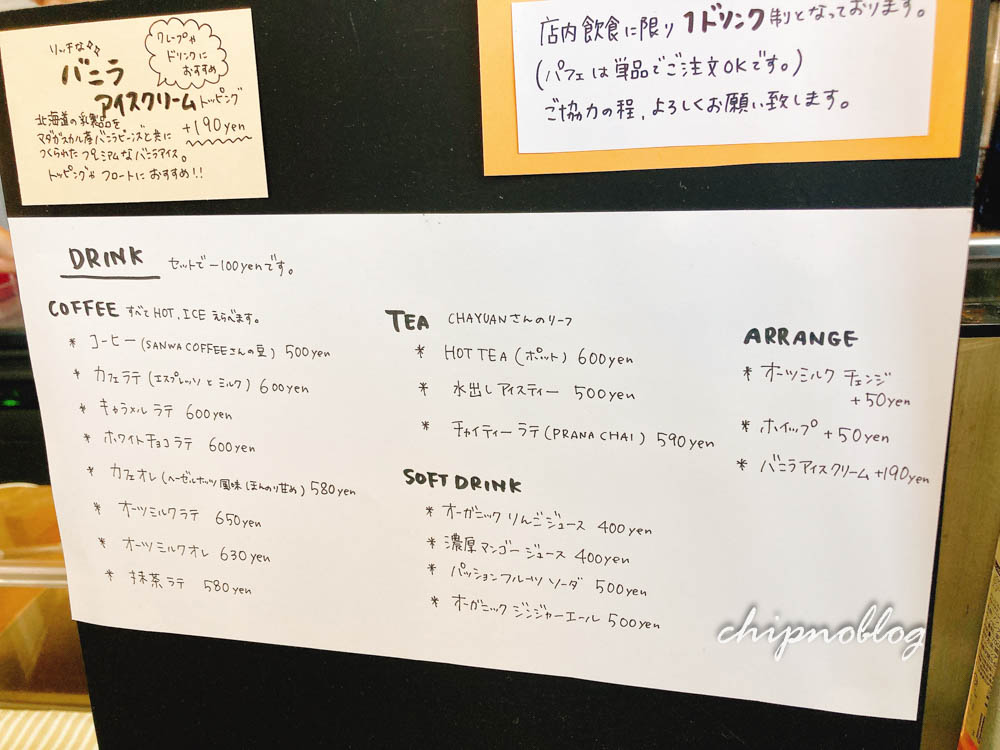 リッチな
バニラ
アイスクリームトッピング
+190yen
クレープや
ドリンクに
おすすめ
北海道の乳製品を
マダガスカル産バニラビーンズと共に
つくられたプレミアムなバニラアイス。
トッピングやフロートにおすすめ!!
店内飲食に限り1ドリンク制となっております。
(パフェは単品でご注文OKです。)
ご協力の程,よろしくお願い致します。
DRINK セットで-100yenです。
COFFEE すべてHOT,ICEえらべます。
* コーヒー(SANWA COFFEEさんの豆) 500yen
* カフェラテ(エスプレッソとミルク) 600yen
* キャラメルラテ 600yen
* ホワイトチョコラテ 600yen
* カフェオレ(ヘーゼルナッツ風味ほんのり甘め) 580yen
* オーツミルクラテ 650yen
* オーツミルクオレ 630yen
* 抹茶ラテ 580yen
TEA CHAYUANさんのリーフ
* HOT TEA(ポット) 600yen
* 水出しアイスティー 500yen
* チャイティーラテ(PRANA CHAI) 590yen
SOFT DRINK
* オーガニックりんごジュース 400yen
* 濃厚マンゴージュース 400yen
* パッションフルーツソーダ 500yen
* オーガニックジンジャーエール 500yen
ARRANGE
* オーツミルクチェンジ
+50yen
* ホイップ+50yen
* バニラアイスクリーム+190yen
chipnoblog